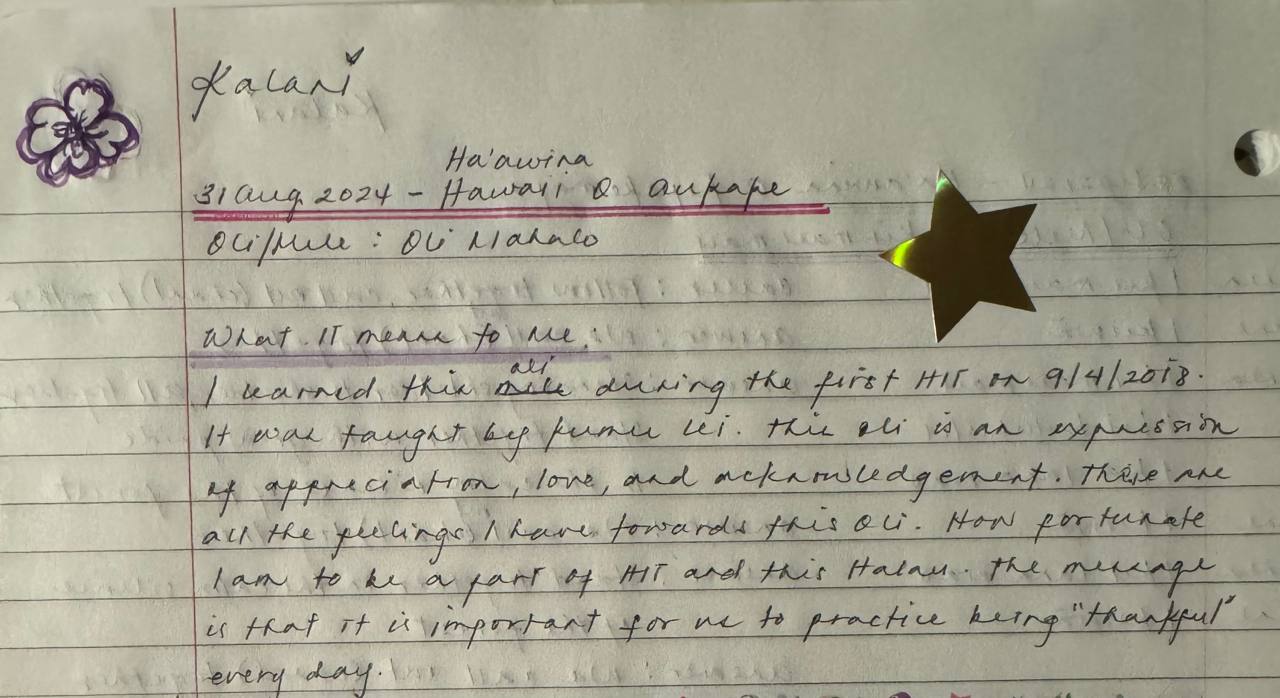 Kalani
Ha'awina
31 Aug 2024 - Hawaii O aukape
Oli/Mele : Oli Mahalo
What It means to Me:
oli
I learned this mele during the first HIT on 9/4/2018.
It was taught by Kumu Lei. This oli is an expression
of appreciation, love, and acknowledgement. These are
all the feelings I have towards this Oli. How fortunate
I am to be a part of HIT and this Halau. The message
is that it is important for us to practice being "thankful"
every day.